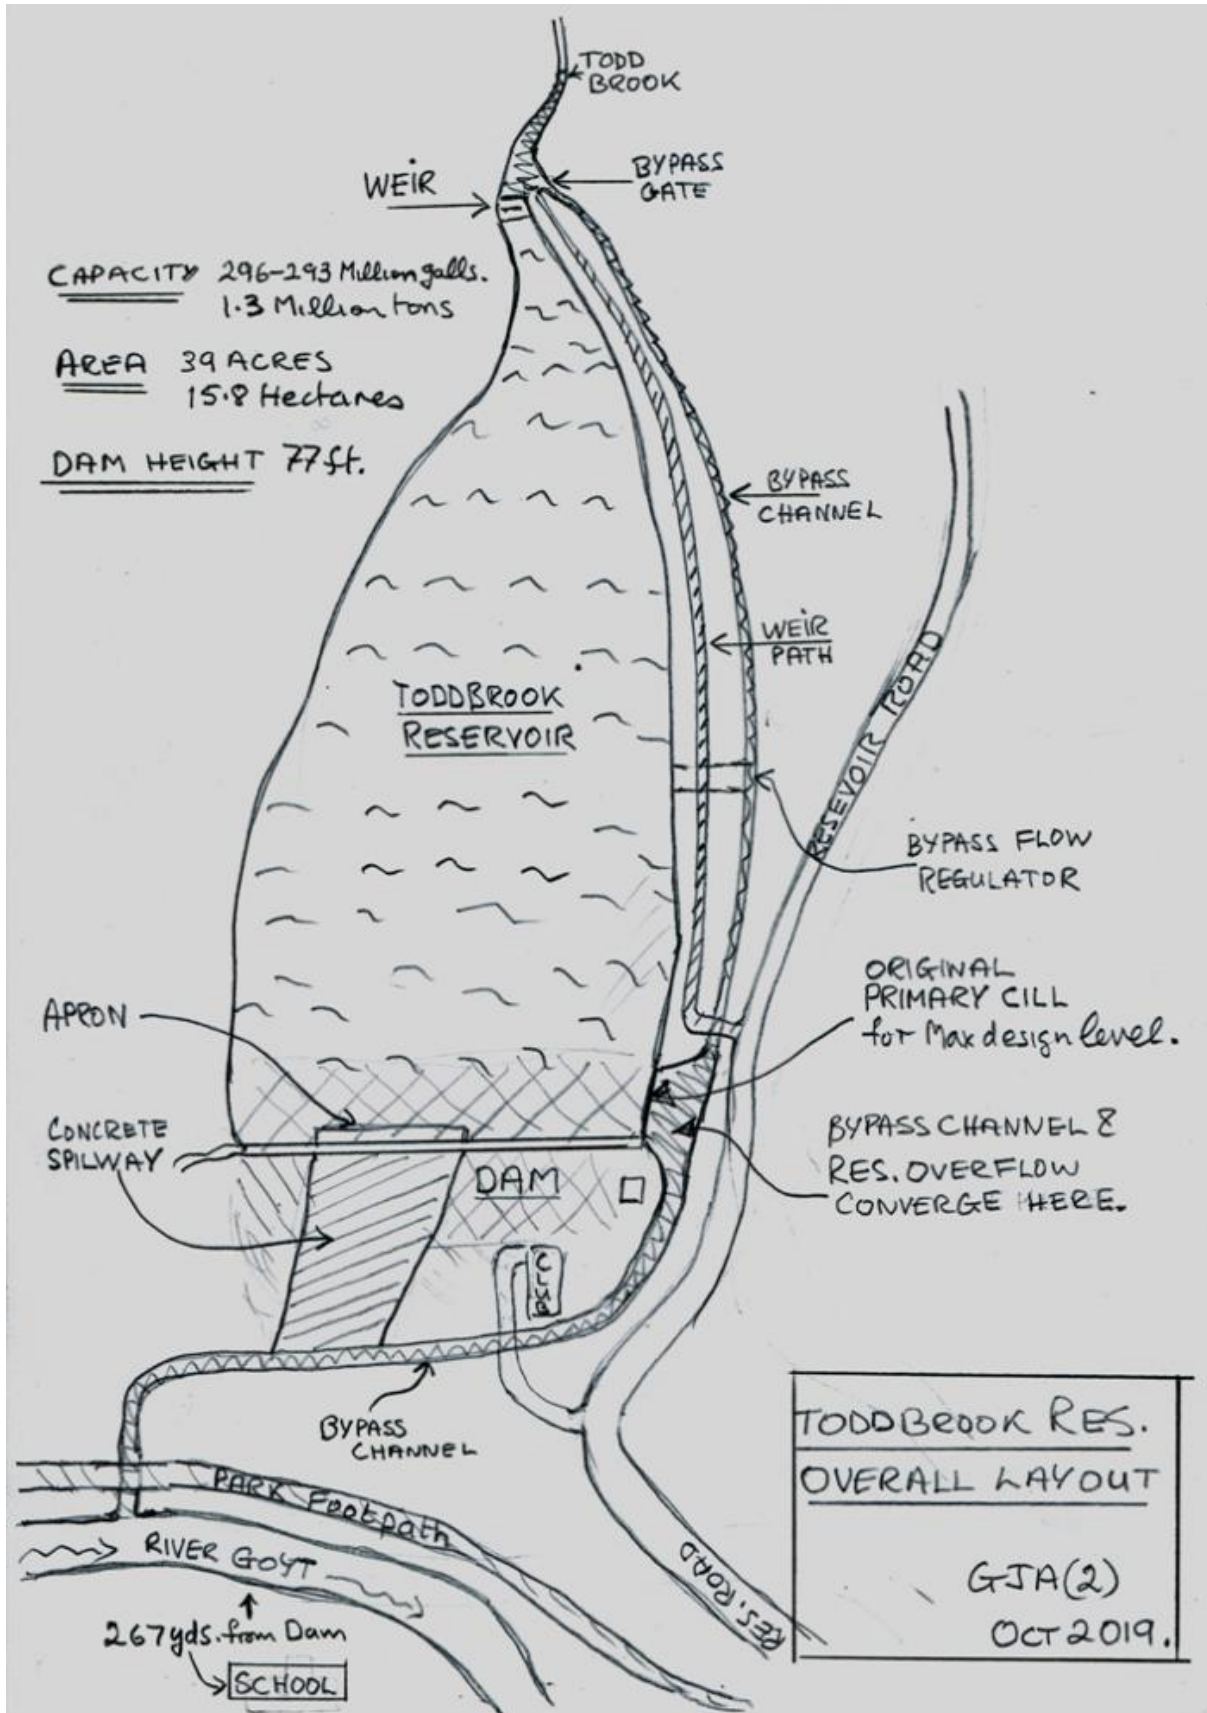 TODD
BROOK
BYPASS
GATE
WEIR
CAPACITY 296-293 Million galls.
1.3 Million tons
AREA 39 ACRES
15.8 Hectares
DAM HEIGHT 77ft.
BYPASS
CHANNEL
WEIR
PATH
RESEVOIR ROAD
TODDBROOK
RESERVOIR
BYPASS FLOW
REGULATOR
ORIGINAL
PRIMARY CILL
for Max design level.
APRON
CONCRETE
SPILWAY
DAM
BYPASS CHANNEL &
RES. OVERFLOW
CONVERGE HERE.
CLUB
BYPASS
CHANNEL
PARK Footpath
RIVER GOYT
267yds. from Dam
SCHOOL
RES. ROAD
TODDBROOK RES.
OVERALL LAYOUT
GJA(2)
OCT 2019.